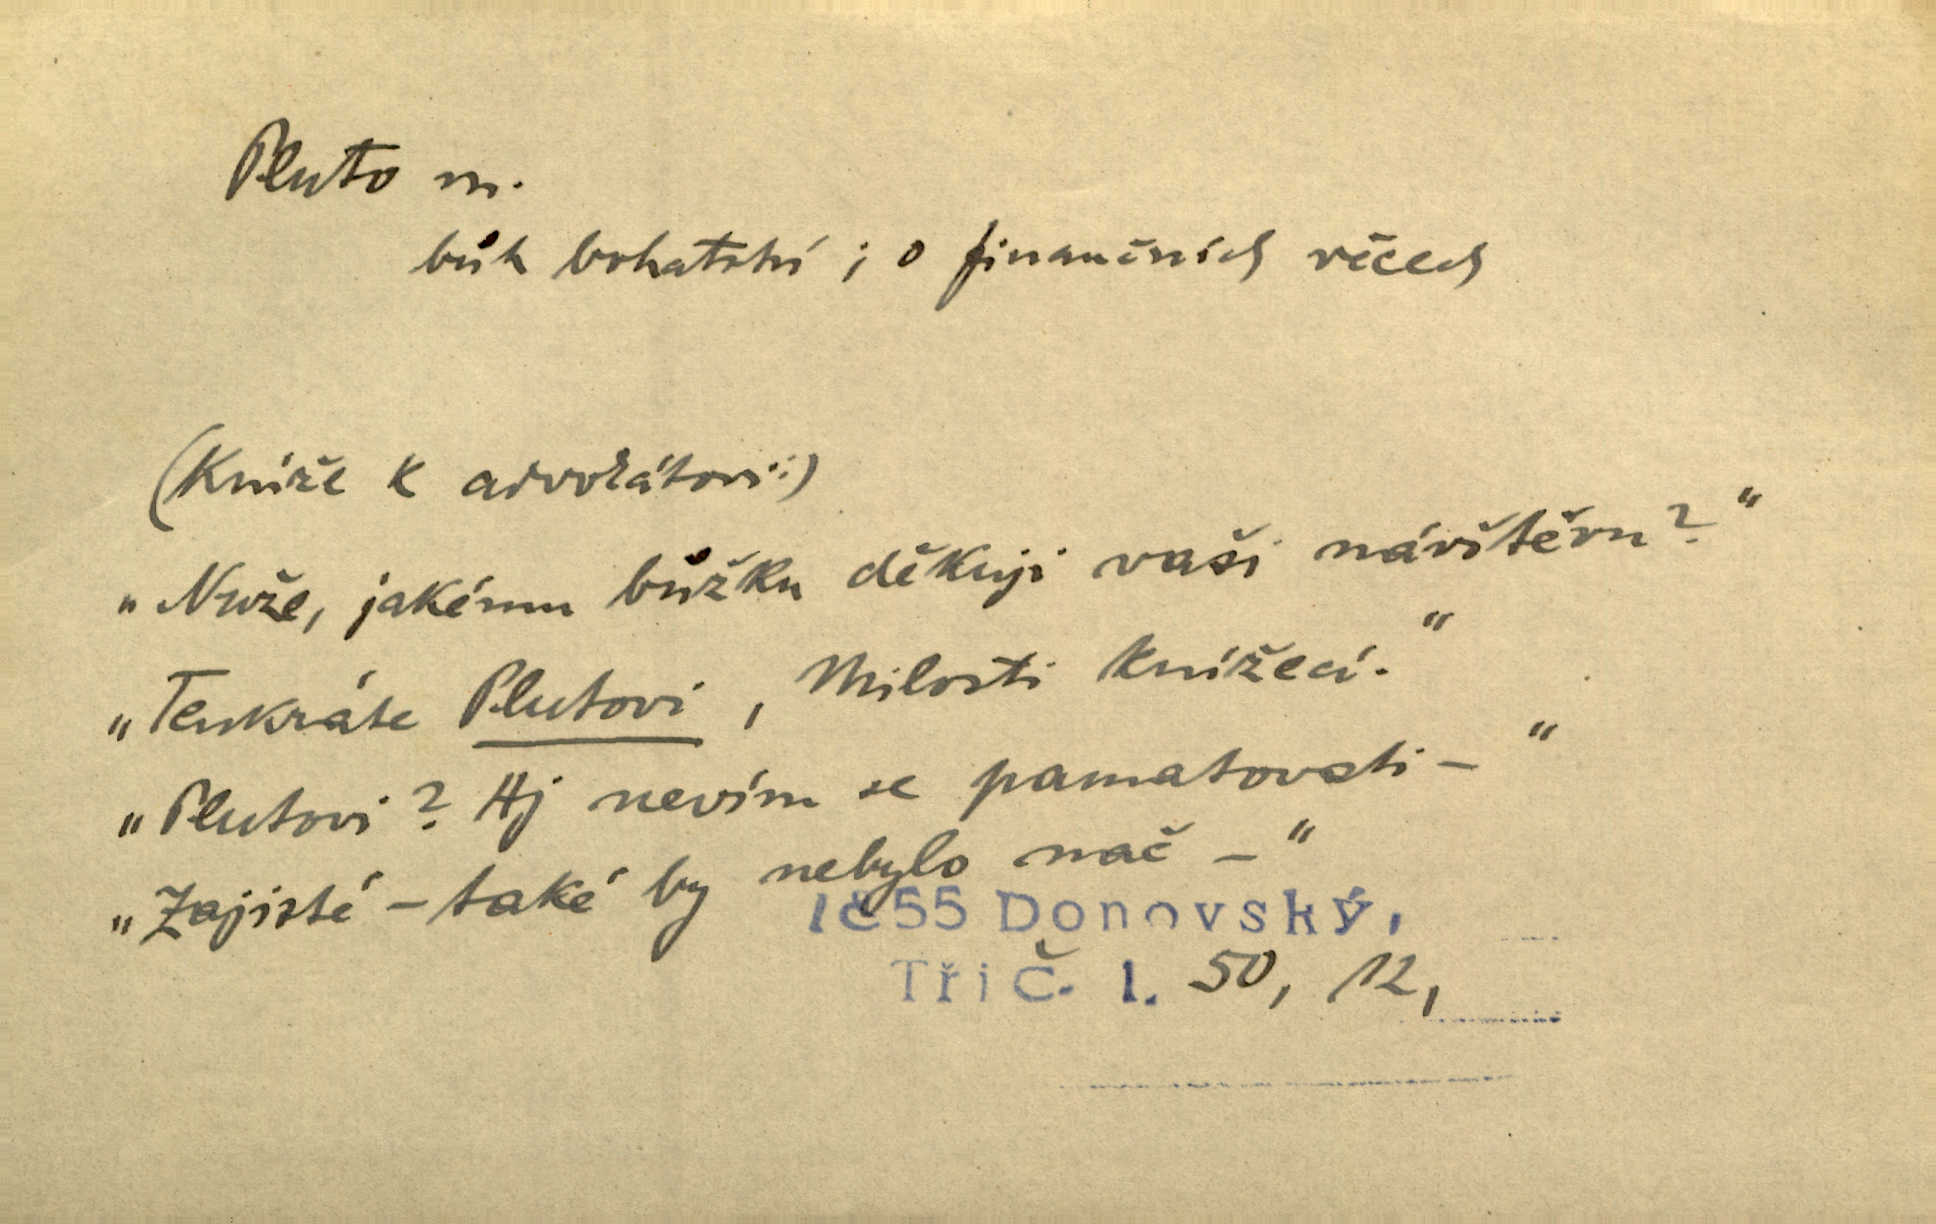 Pluto m.
bůh bohatství; o finančních věcech
(Kníže k advokátovi:)
„Nuže, jakému bůžku děkuji vaši návštěvu?"
„Tenkráte Plutovi, Milosti knížecí."
„Plutovi? Aj nevím se pamatovati –"
„Zajisté – také by nebylo nač –"
1č55 Donovský,
Tři Č. 1. 50, 12,